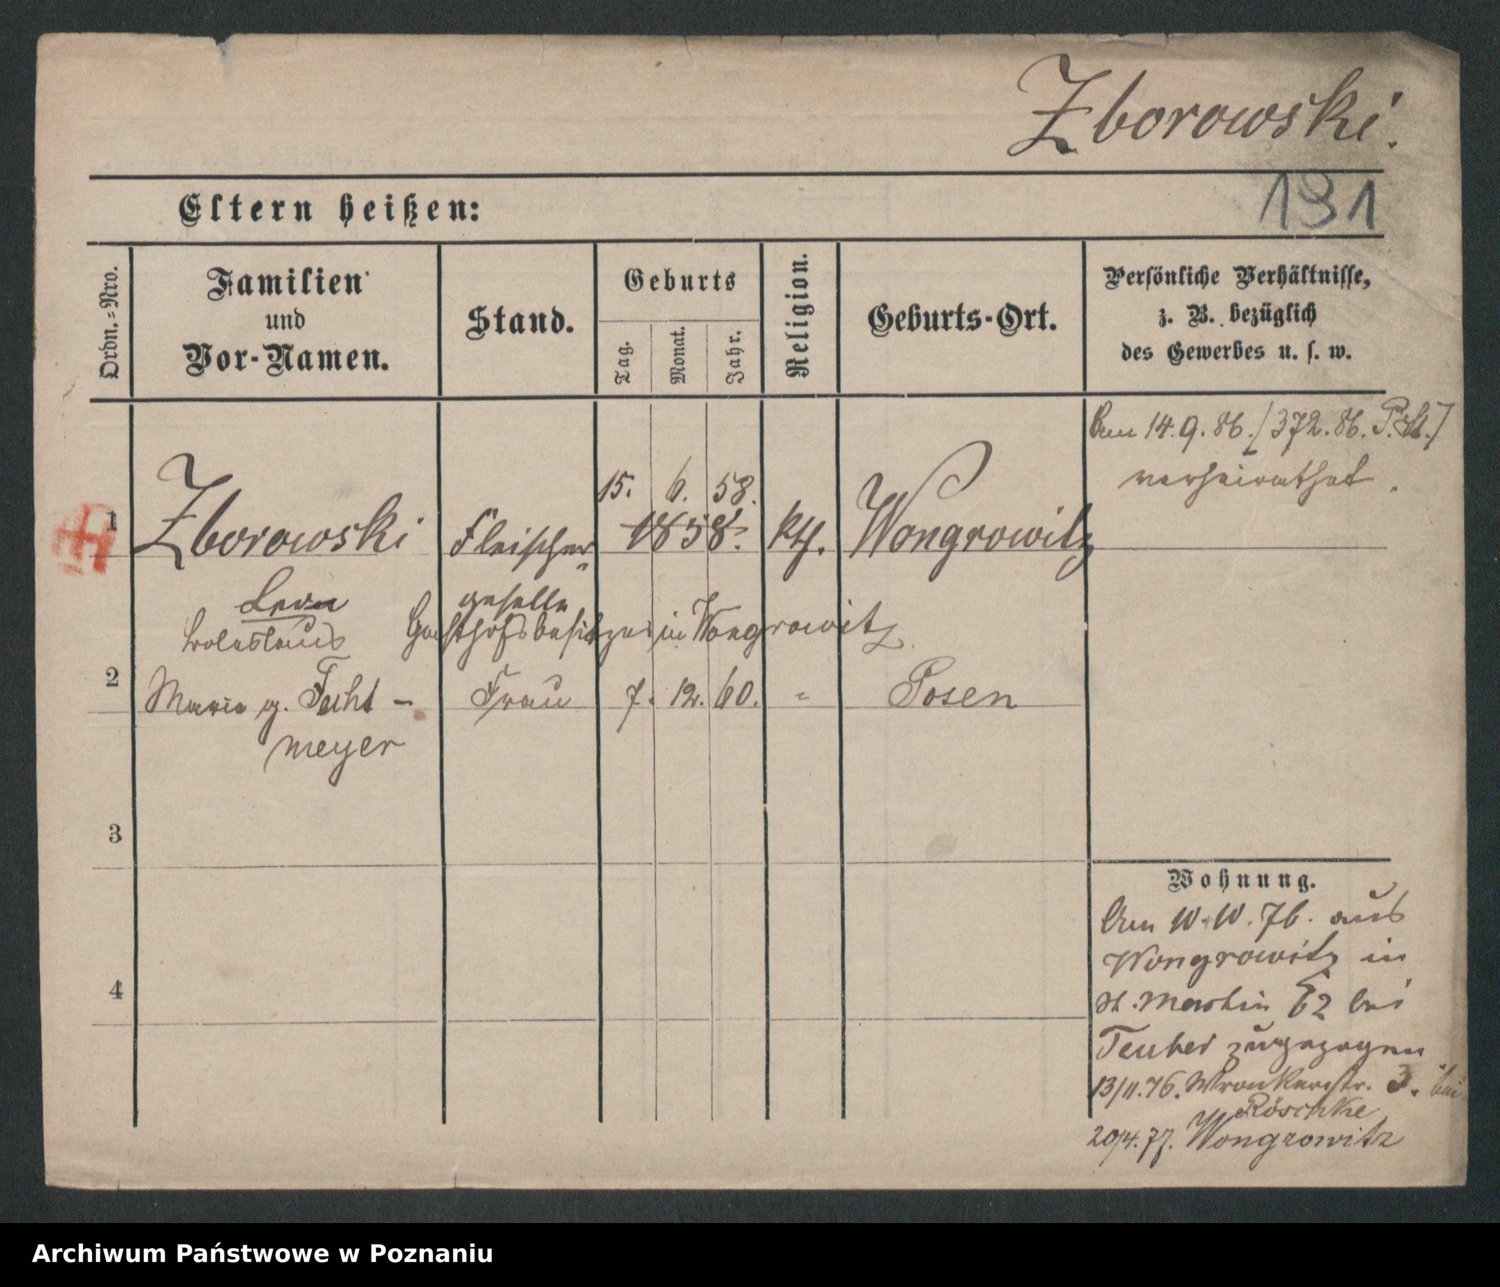 Zborowski.
131
Eltern heißen:
Ordn.=Nro.
Familien
und
Vor-Namen.
Stand.
Geburts
Tag.
Monat.
Jahr.
Religion.
Geburts-Ort.
Persönliche Verhältnisse,
z. B. bezüglich
des Gewerbes u. s. w.
Am 14.9.86. [372.86. P. St.]
verheirathet.
15. 6. 58.
1 Zborowski Fleischer 1858. kth. Wongrowitz
Leon geselle
Boleslaus Gasthofsbesitzer in Wongrowitz.
2 Marie g. Fecht- Frau 7. 12. 60. " Posen
meyer
3
4
Wohnung.
Am 10.10.76. aus
Wongrowitz in
St. Martin 62 bei
Teuber zugezogen
13/11.76. Wronkerstr. 3. bei
Röschke
20/4.77. Wongrowitz
Archiwum Państwowe w Poznaniu